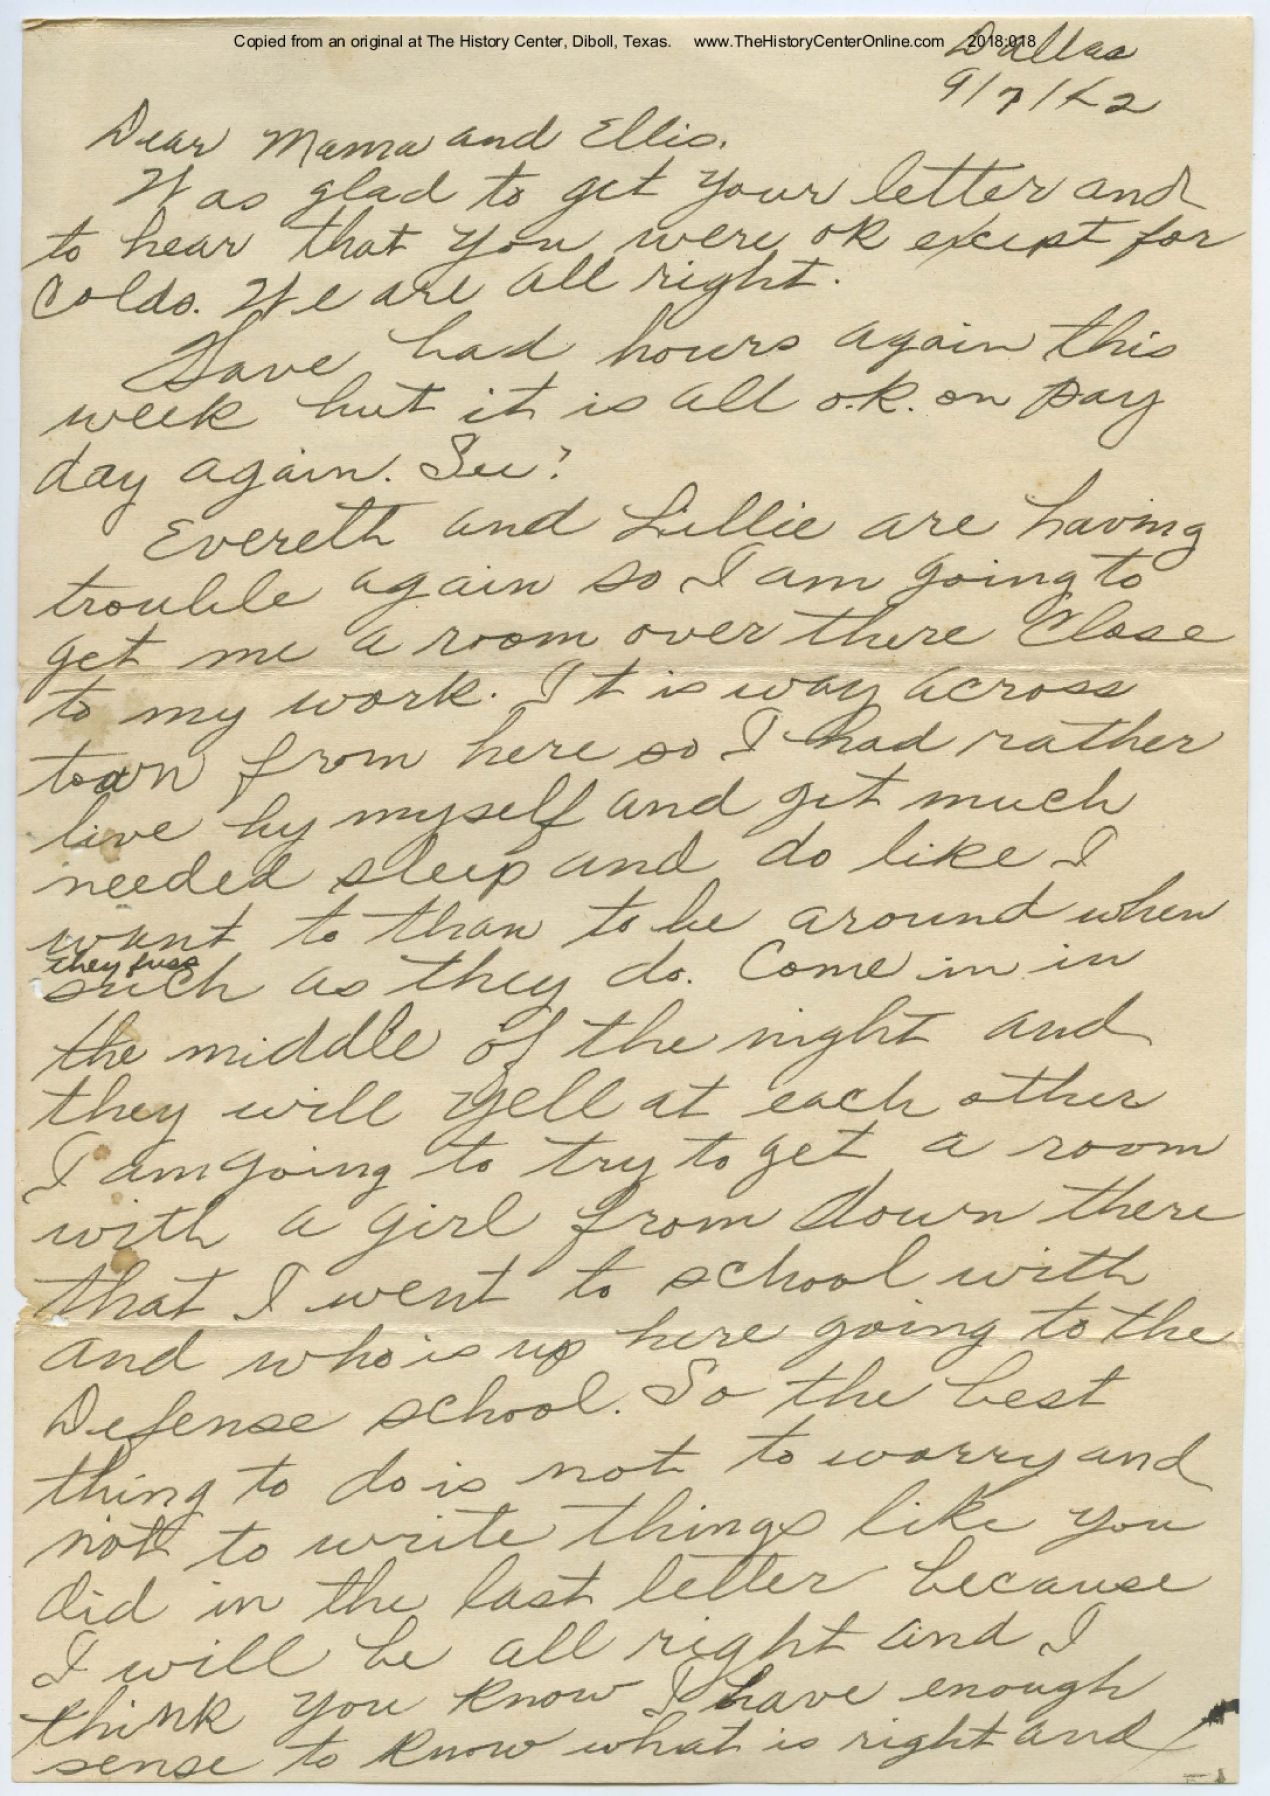 Copied from an original at The History Center, Diboll, Texas. www.TheHistoryCenterOnline.com 2018:018
Dallas
9/7/42
Dear Mama and Ellis.
Was glad to get your letter and
to hear that you were ok except for
colds. We are all right.
Have had hours again this
week but it is all o.k. on pay
day again. See?
Evereth and Lillie are having
trouble again so I am going to
get me a room over there close
to my work. It is way across
town from here so I had rather
live by myself and get much
needed sleep and do like I
want to than to be around when
they fuss
such as they do. Come in in
the middle of the night and
they will yell at each other
I am going to try to get a room
with a girl from down there
that I went to school with
and who is up here going to the
Defense school. So the best
thing to do is not to worry and
not to write things like you
did in the last letter because
I will be all right and I
think you know I have enough
sense to know what is right and